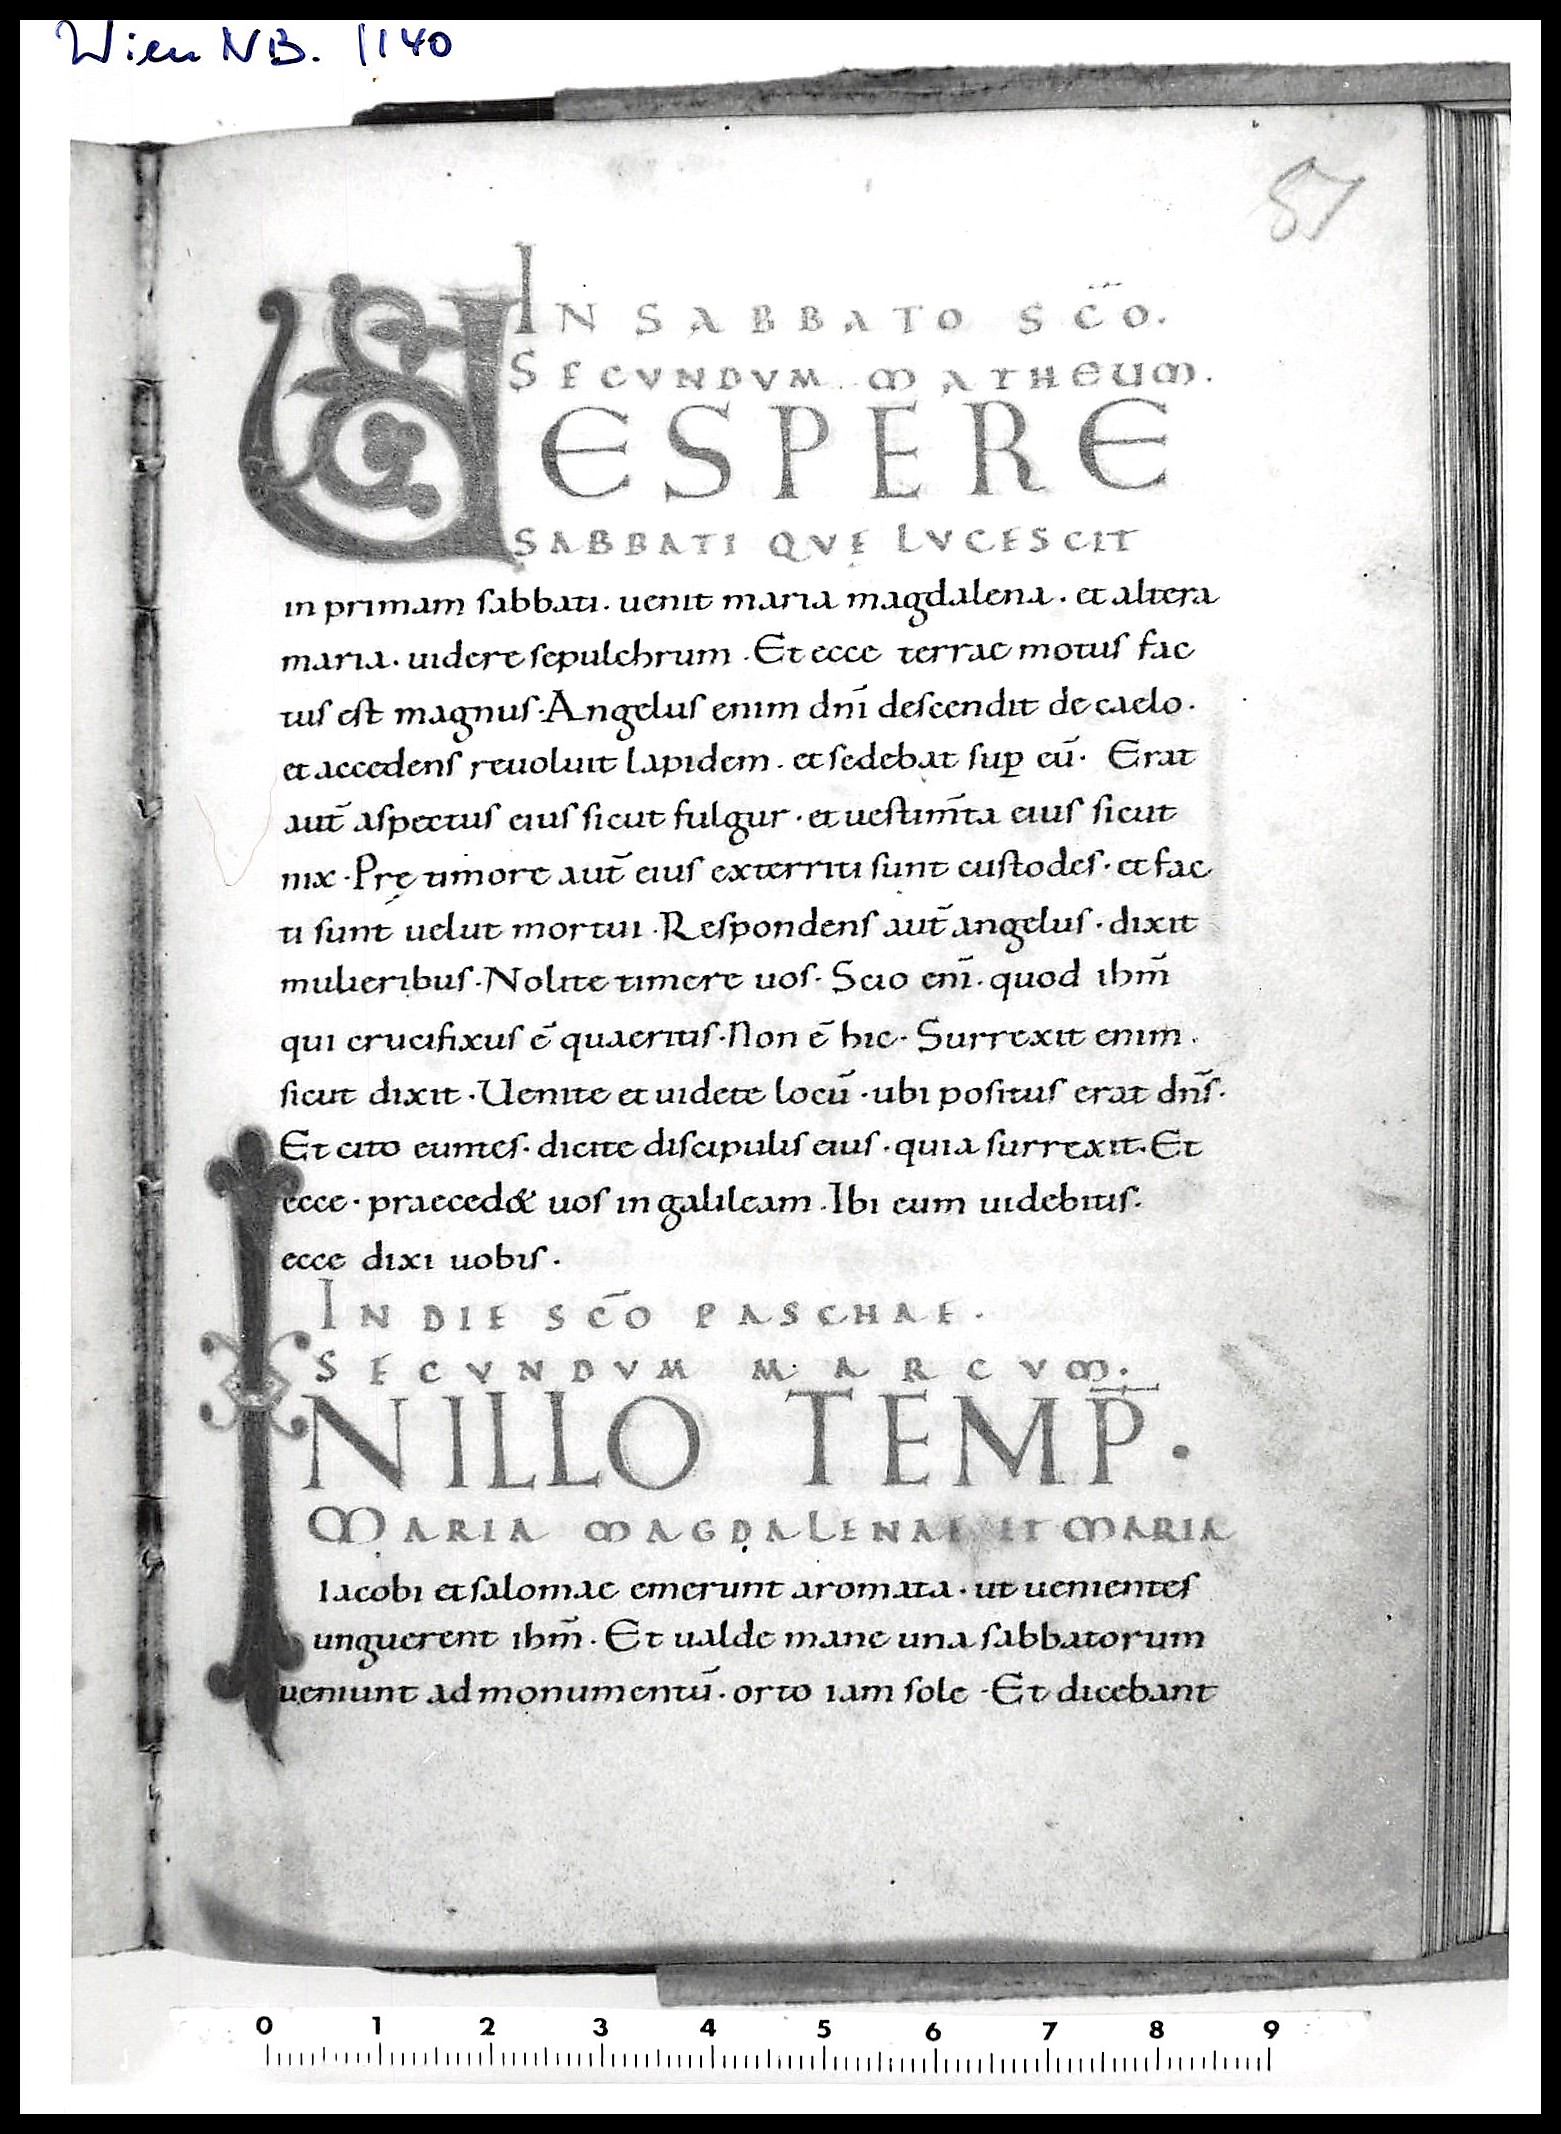 Wien NB. 1140
87
IN SABBATO SC̄O.
SECVNDVM MATHEUM.
VESPERE
SABBATI QVE LVCESCIT
in primam sabbati. uenit maria magdalena. et altera
maria. uidere sepulchrum. Et ecce terrae motus fac
tus est magnus. Angelus enim dn̄i descendit de caelo.
et accedens reuoluit lapidem. et sedebat suꝑ eū. Erat
aut̄ aspectus eius sicut fulgur. et uestim̄ta eius sicut
nix. Prę timore aut̄ eius exterriti sunt custodes. et fac
ti sunt uelut mortui. Respondens aut̄ angelus. dixit
mulieribus. Nolite timere uos. Scio enī. quod ihm̄
qui crucifixus ē quaeritis. Non ē hic. Surrexit enim.
sicut dixit. Uenite et uidete locū. ubi positus erat dn̄s.
Et cito euntes. dicite discipulis eius. quia surrexit. Et
ecce. praeced& uos in galileam. Ibi eum uidebitis.
ecce dixi uobis.
IN DIE SC̄O PASCHAE.
SECVNDVM MARCVM.
IN ILLO TEMP̄.
MARIA MAGDALENAE ET MARIA
Iacobi et salomae emerunt aromata. ut uenientes
unguerent ihm̄. Et ualde mane una sabbatorum
ueniunt ad monumentū. orto iam sole. Et dicebant
0 1 2 3 4 5 6 7 8 9